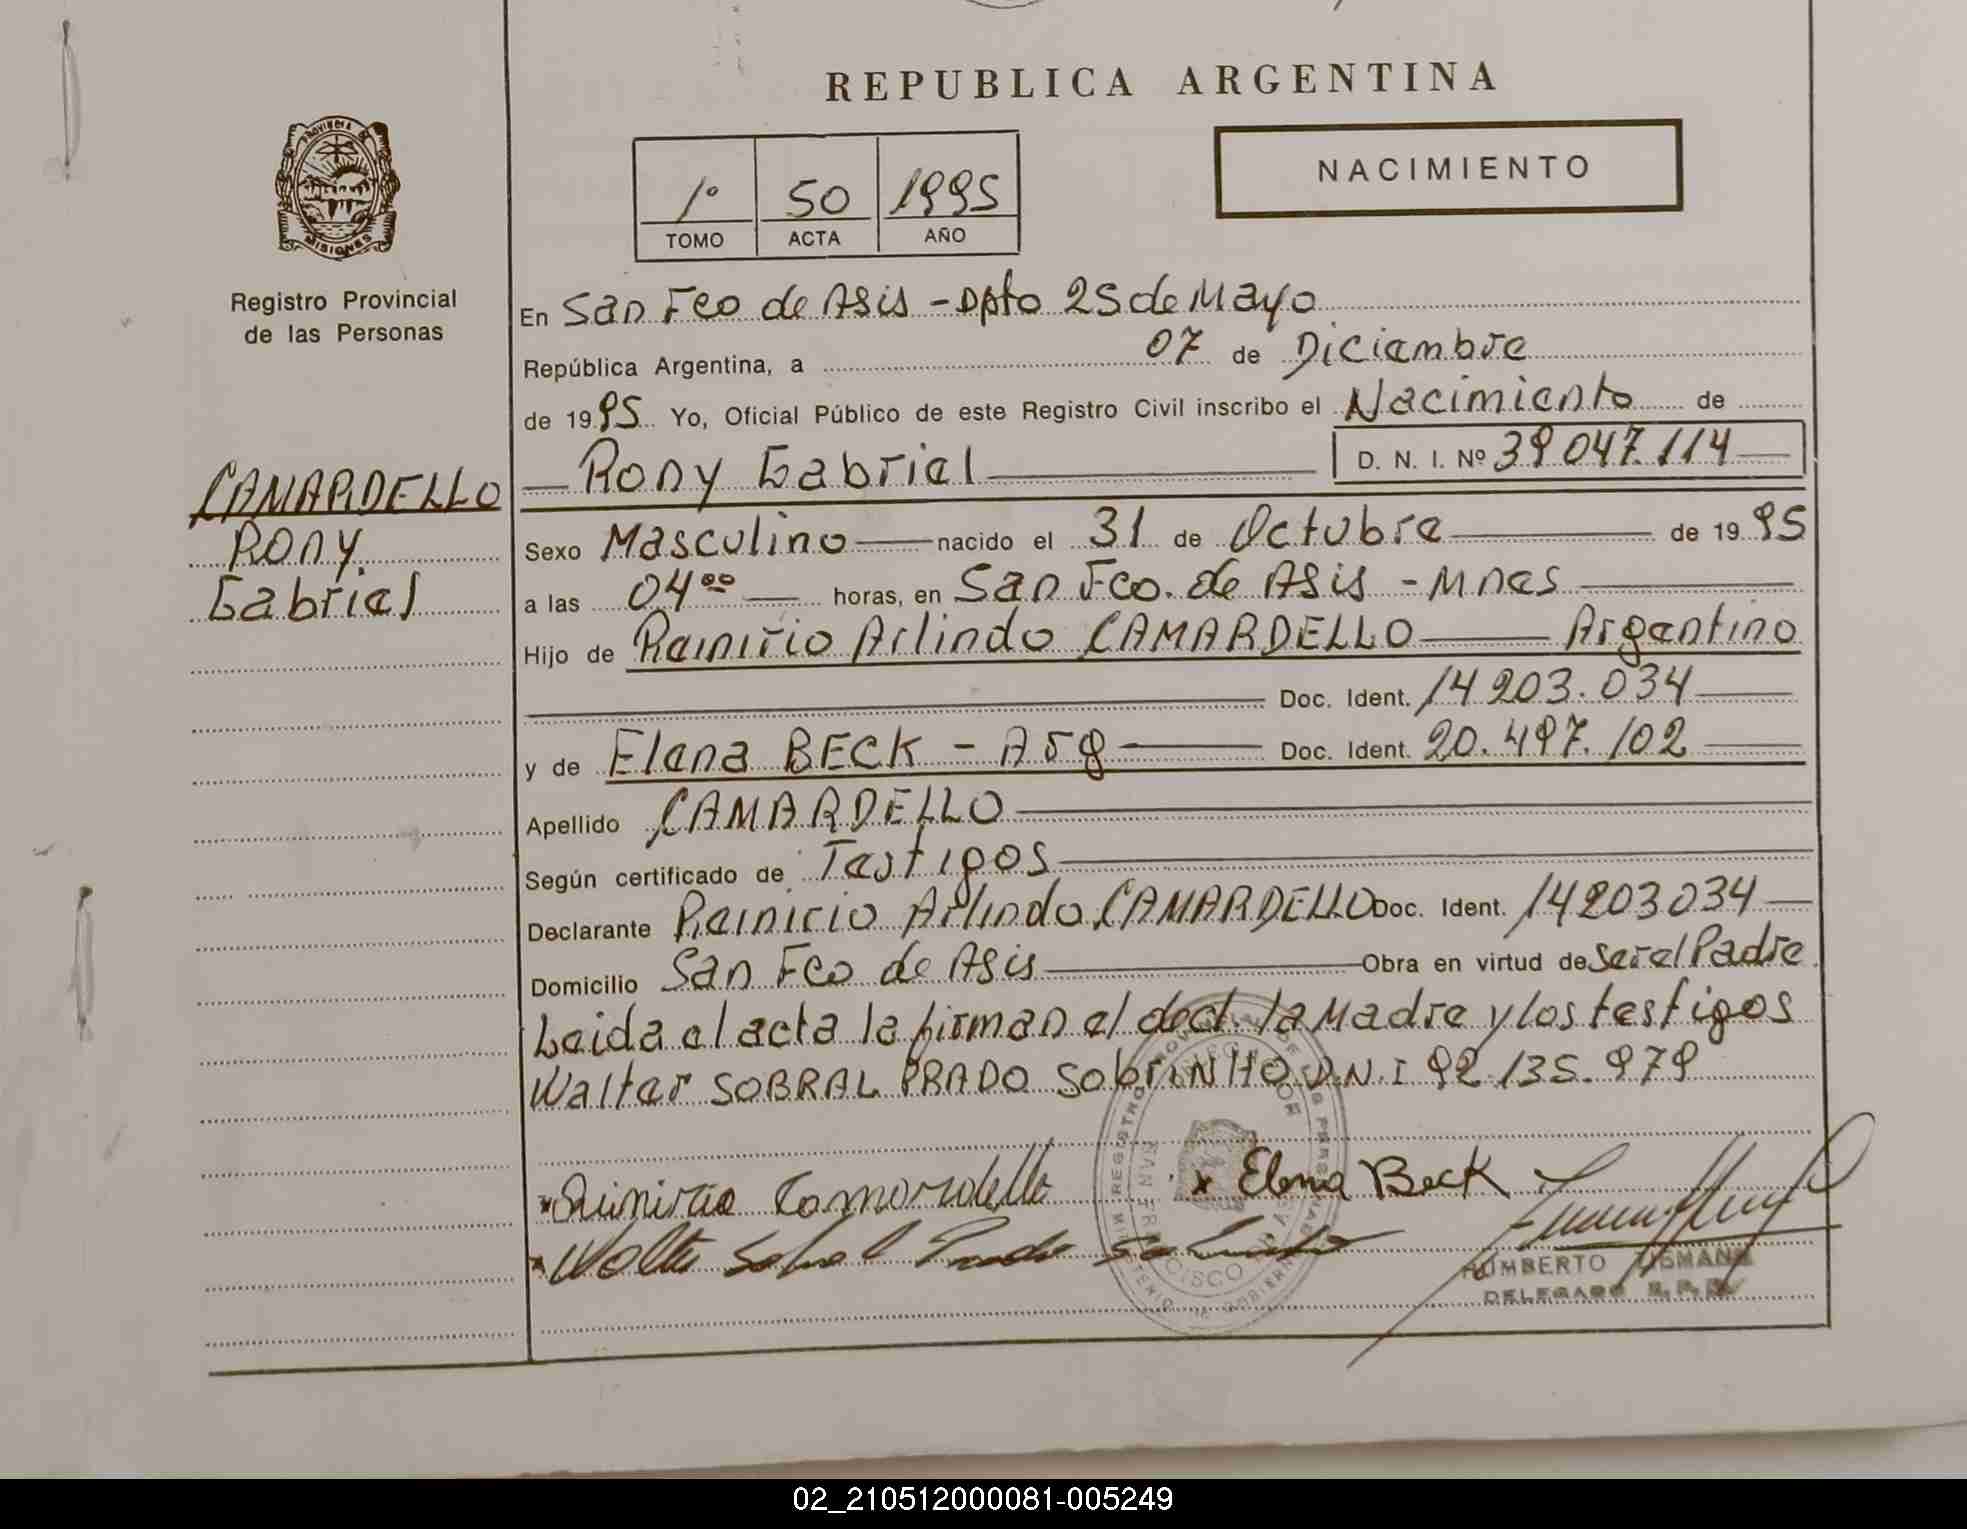 REPUBLICA ARGENTINA
NACIMIENTO
1º 50 1995
TOMO ACTA AÑO
PROVINCIA DE MISIONES
Registro Provincial
de las Personas
CAMARDELLO
Rony
Gabriel
En San Fco de Asis - Dpto 25 de Mayo
República Argentina, a 07 de Diciembre
de 1995 Yo, Oficial Público de este Registro Civil inscribo el Nacimiento de
Rony Gabriel D. N. I. Nº 39 047.114
Sexo Masculino nacido el 31 de Octubre de 1995
a las 04 00 horas, en San Fco. de Asis - Mnes
Hijo de Reinirio Arlindo CAMARDELLO Argentino
Doc. Ident. 14 203.034
y de Elena BECK - Arg Doc. Ident. 20.497.102
Apellido CAMARDELLO
Según certificado de Testigos
Declarante Reinirio Arlindo CAMARDELLO Doc. Ident. 14203034
Domicilio San Fco de Asis Obra en virtud de ser el Padre
Leida el acta la firman el decl. la Madre y los testigos
Walter SOBRAL PRADO SobriNHO D.N.I 92.135.979
x Elena Beck
Walter Sobral Prado Sobrinho
HUMBERTO
DELEGADO
02_210512000081-005249